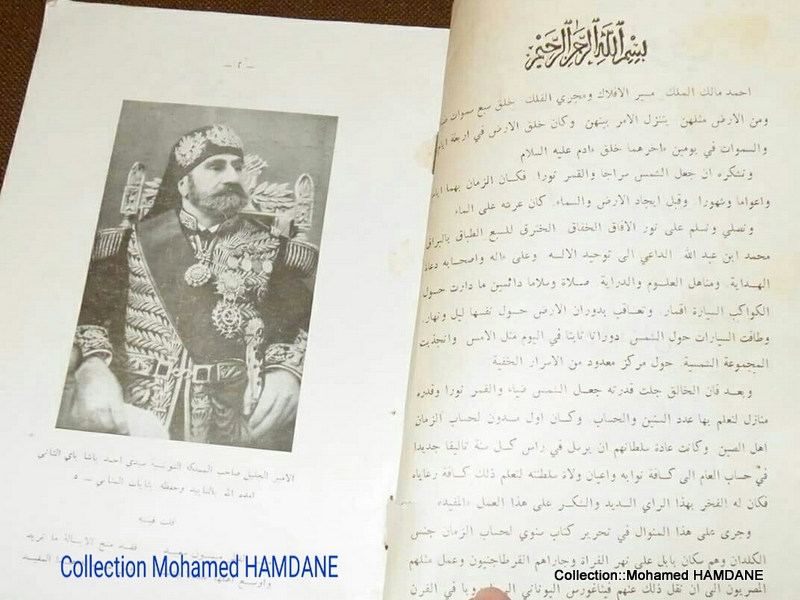 — ٢ —
الامير الجليل صاحب المملكة التونسية سيدي احمد باشا باي الثاني
امده الله بالتاييد وحفظه بثايات المثاني — ٥
قلت فيه
Collection Mohamed HAMDANE
بسم الله الرحمن الرحيم
احمد مالك الملك مسير الافلاك ومجري الفلك خلق سبع سموات
ومن الارض مثلهن يتنزل الامر بينهن وكان خلق الارض في اربعة ايام
والسموات في يومين ءاخرهما خلق ءادم عليه السلام
ونشكره ان جعل الشمس سراجا والقمر نورا فكان الزمان بهما اياما
واعواما وشهورا وقبل ايجاد الارض والسماء كان عرشه على الماء
ونصلي ونسلم على نور الافاق الخفاق المخترق للسبع الطباق بالبراق
محمد ابن عبد الله الداعي الى توحيد الاله وعلى ءاله واصحابه دعاة
الهداية ومناهل العلوم والدراية صلاة وسلاما دائمين ما دارت حول
الكواكب السيارة اقمار وتعاقب بدوران الارض حول نفسها ليل ونهار
وطافت السيارات حول الشمس دورانا ثابتا في اليوم مثل الامس وانجذبت
المجموعة الشمسية حول مركز معدود من الاسرار الخفية
وبعد فان الخالق جلت قدرته جعل الشمس ضياء والقمر نورا وقدره
منازل لنعلم بها عدد السنين والحساب وكان اول مدون لحساب الزمان
اهل الصين وكانت عادة سلطانهم ان يرسل في راس كل سنة تاليفا جديدا
في حساب العام الى كافة نوابه واعيان ولاة سلطنته لتعلم ذلك كافة رعاياه
فكان له الفخر بهذا الراي السديد والشكر على هذا العمل المفيد
وجرى على هذا المنوال في تحرير كتاب سنوي لحساب الزمان جنس
الكلدان وهم سكان بابل على نهر الفراة وجاراهم القرطاجنيون وعمل مثلهم
المصريون الى ان نقل ذلك عنهم فيثاغورس اليوناني في القرن
Collection::Mohamed HAMDANE